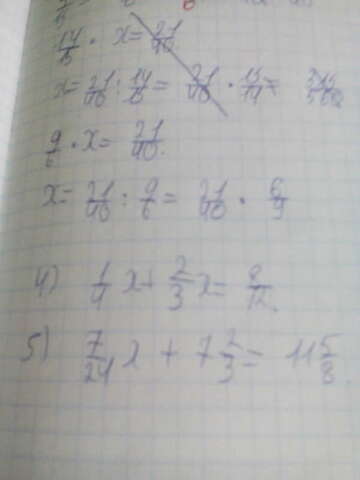 14/15 · x = 21/40
x = 21/40 : 14/15 = 21/40 · 15/14 = 315/560
9/6 · x = 21/40
x = 21/40 : 9/6 = 21/40 · 6/9
4) 1/4 x + 2/3 x = 8/12
5) 7/24 x + 7 2/3 = 11 5/8